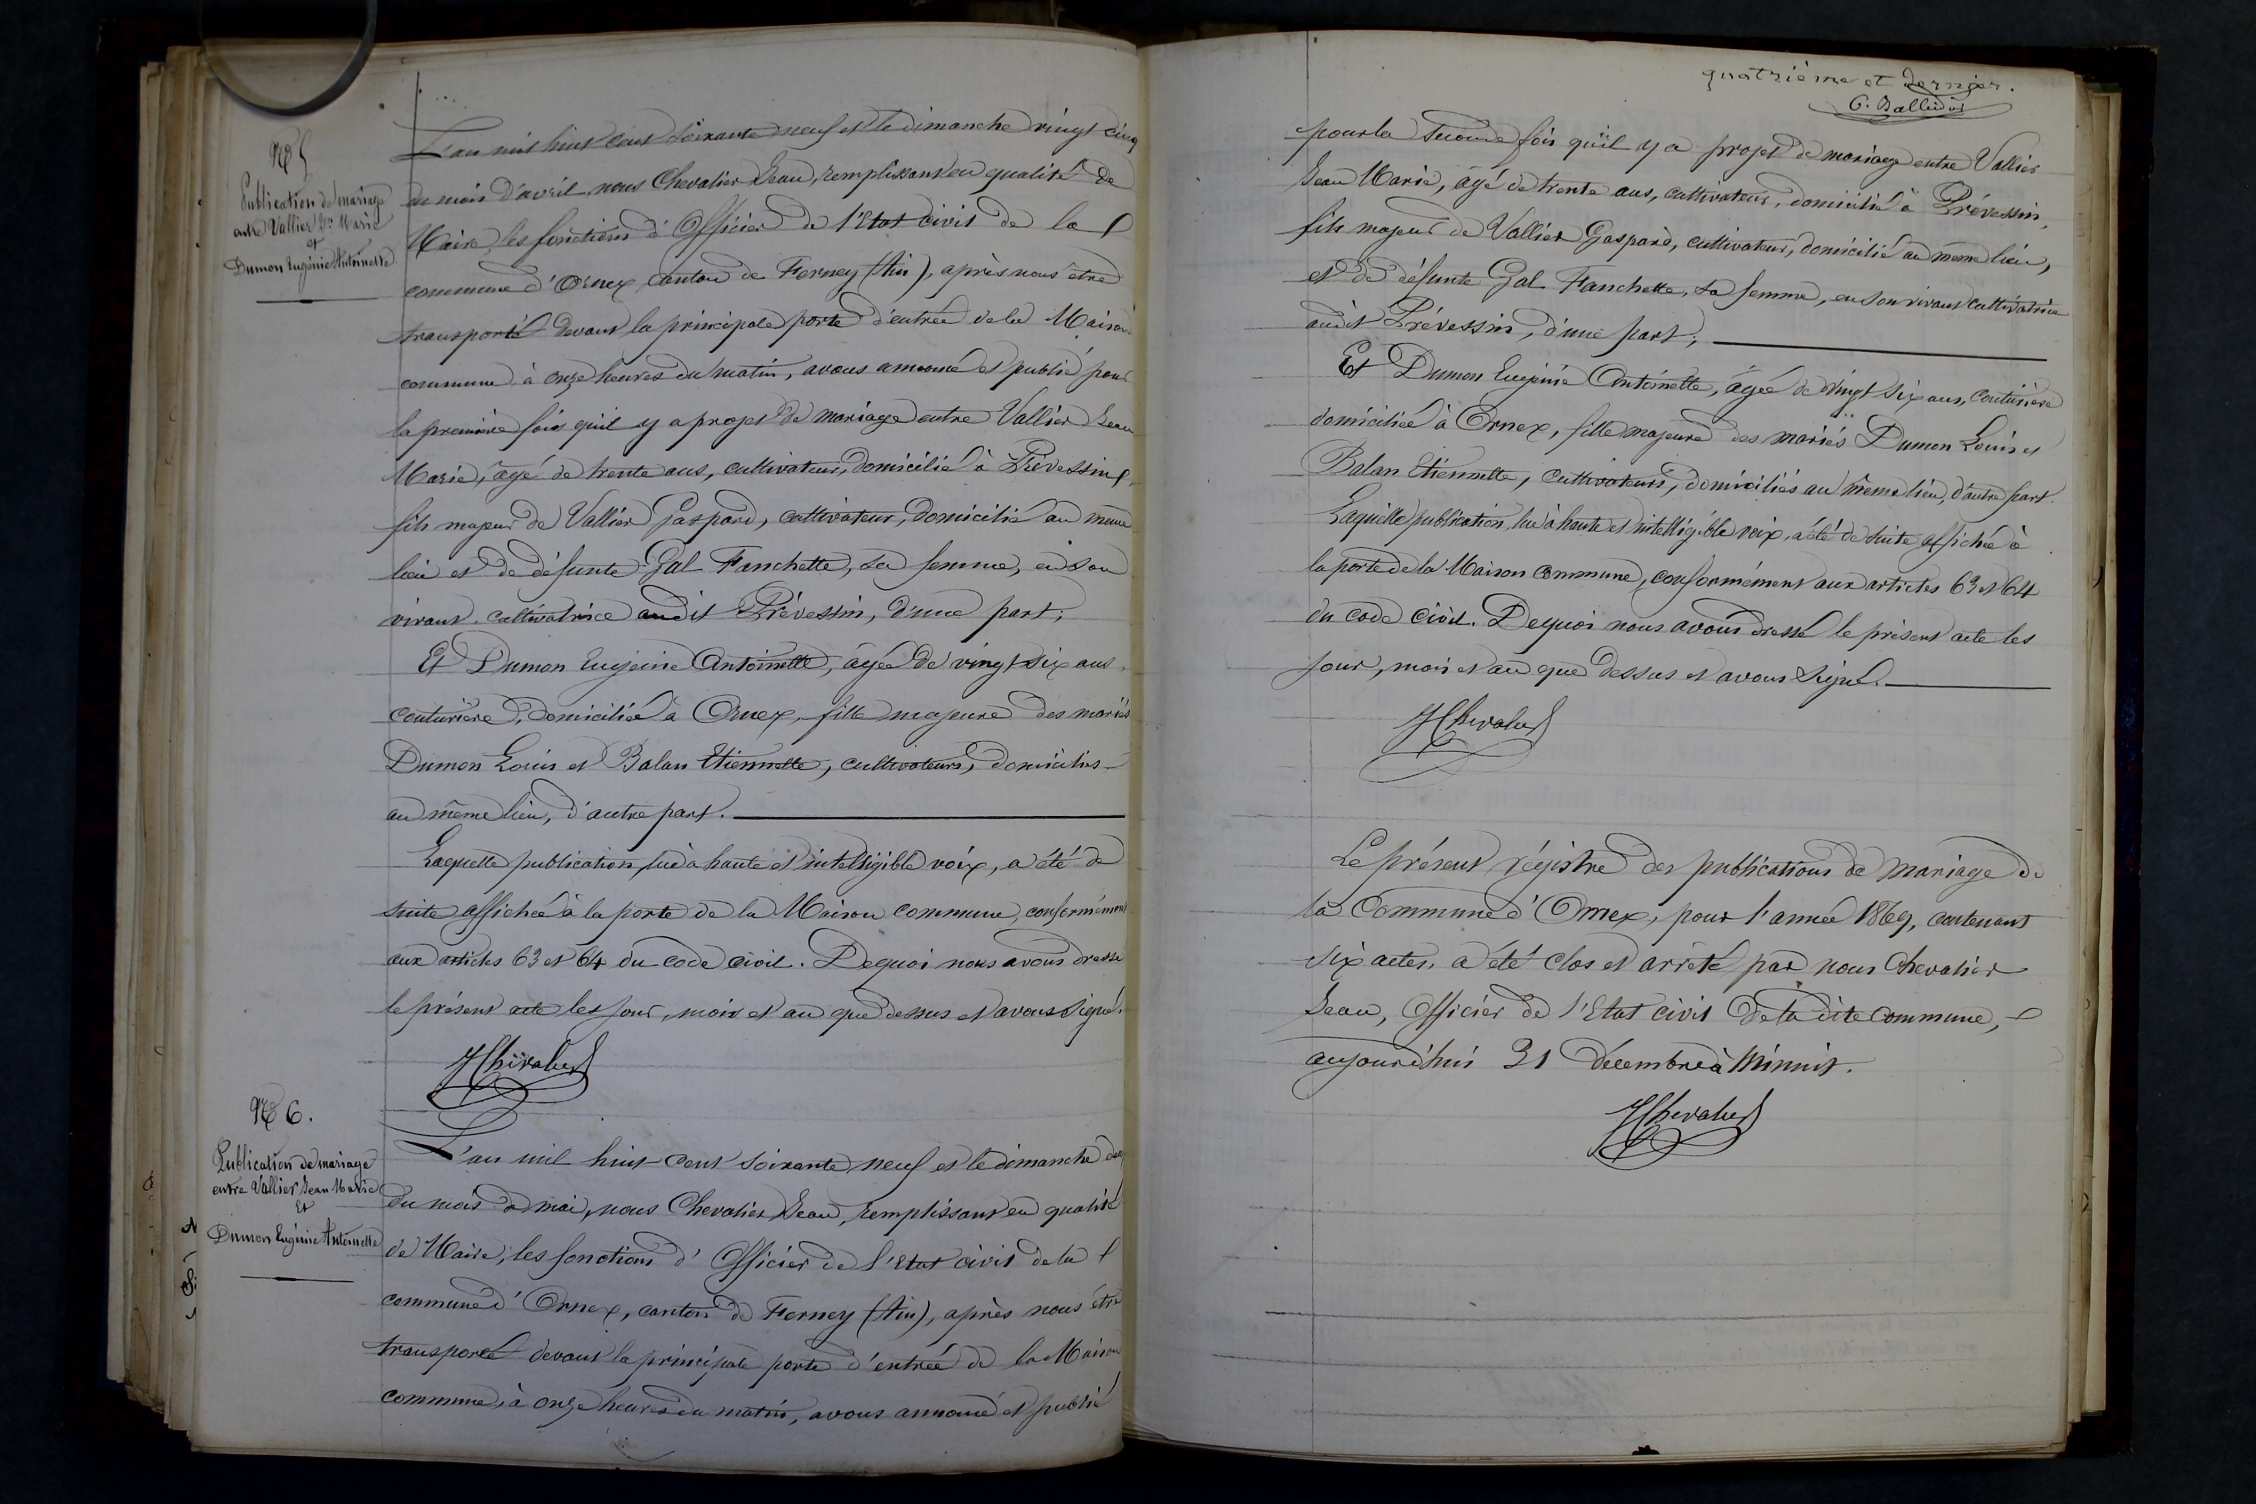 No 5
Publication de mariage
entre Vallier Jn Marie
et
Dumon Eugénie Antoinette
L'an mil huit cent soixante neuf et le dimanche vingt cinq
du mois d'avril nous Chevalier Jean, remplissant en qualité de
Maire, les fonctions d'Officier de l'Etat civil de la
commune d'Ornex, canton de Ferney (Ain), après nous être
transporté devant la principale porte d'entrée de la Maison
commune à onze heures du matin, avons annoncé et publié pour
la première fois qu'il y a projet de mariage entre Vallier Jean
Marie, âgé de trente ans, cultivateur, domicilié à Prévessin,
fils majeur de Vallier Gaspard, cultivateur, domicilié au même
lieu et de défunte Gal Fanchette, sa femme, en son
vivant cultivatrice audit Prévessin, d'une part;
Et Dumon Eugénie Antoinette, âgée de vingt six ans,
couturière, domiciliée à Ornex, fille majeure des mariés
Dumon Louis et Balan Etiennette, cultivateurs, domiciliés
au même lieu, d'autre part.
Laquelle publication, lue à haute et intelligible voix, a été de
suite affichée à la porte de la Maison commune, conformément
aux articles 63 et 64 du code civil. De quoi nous avons dressé
le présent acte les jour, mois et an que dessus et avons signé.
JChevalier
No 6.
Publication de mariage
entre Vallier Jean Marie
Et
Dumon Eugénie Antoinette
L'an mil huit cent soixante neuf et le dimanche deux
du mois de mai, nous Chevalier Jean, remplissant en qualité
de Maire, les fonctions d'Officier de l'Etat civil de la
commune d'Ornex, canton de Ferney (Ain), après nous être
transporté devant la principale porte d'entrée de la Maison
commune, à onze heures du matin, avons annoncé et publié
quatrième et dernier.
pour la seconde fois qu'il y a projet de mariage entre Vallier
Jean Marie, âgé de trente ans, cultivateur, domicilié à Prévessin,
fils majeur de Vallier Gaspard, cultivateur, domicilié au même lieu,
et de défunte Gal Fanchette, sa femme, en son vivant cultivatrice
audit Prévessin, d'une part;
Et Dumon Eugénie Antoinette, âgée de vingt six ans, couturière
domiciliée à Ornex, fille majeure des mariés Dumon Louis et
Balan Etiennette, cultivateurs, domiciliés au même lieu, d'autre part.
Laquelle publication, lue à haute et intelligible voix, a été de suite affichée à
la porte de la Maison commune, conformément aux articles 63 et 64
du code civil. De quoi nous avons dressé le présent acte les
jour, mois et an que dessus et avons signé.
JChevalier
Le présent régistre des publications de mariage de
la Commune d'Ornex, pour l'année 1869, contenant
six actes, a été clos et arrêté par nous Chevalier
Jean, Officier de l'Etat civil de la dite commune,
aujourd'hui 31 décembre à Minuit.
JChevalier